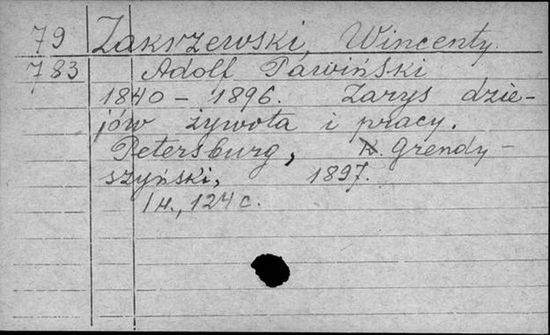 79 Zakrzewski, Wincenty.
783 Adolf Pawiński
1840 – 1896. Zarys dzie-
jów żywota i pracy.
Petersburg, K. Grendy-
szyński, 1897.
1 н., 124 с.